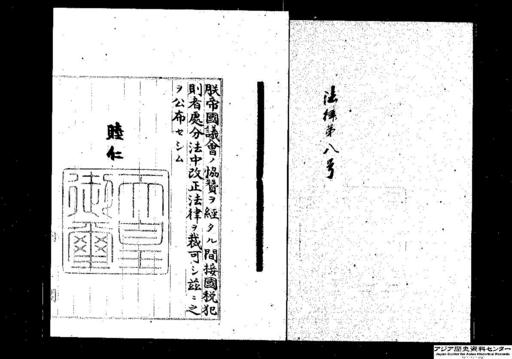 法律第八号
朕帝國議會ノ協賛ヲ經タル間接國税犯
則者處分法中改正法律ヲ裁可シ茲ニ之
ヲ公布セシム
睦仁
天皇
御璽
アジア歴史資料センター
Japan Center for Asian Historical Records